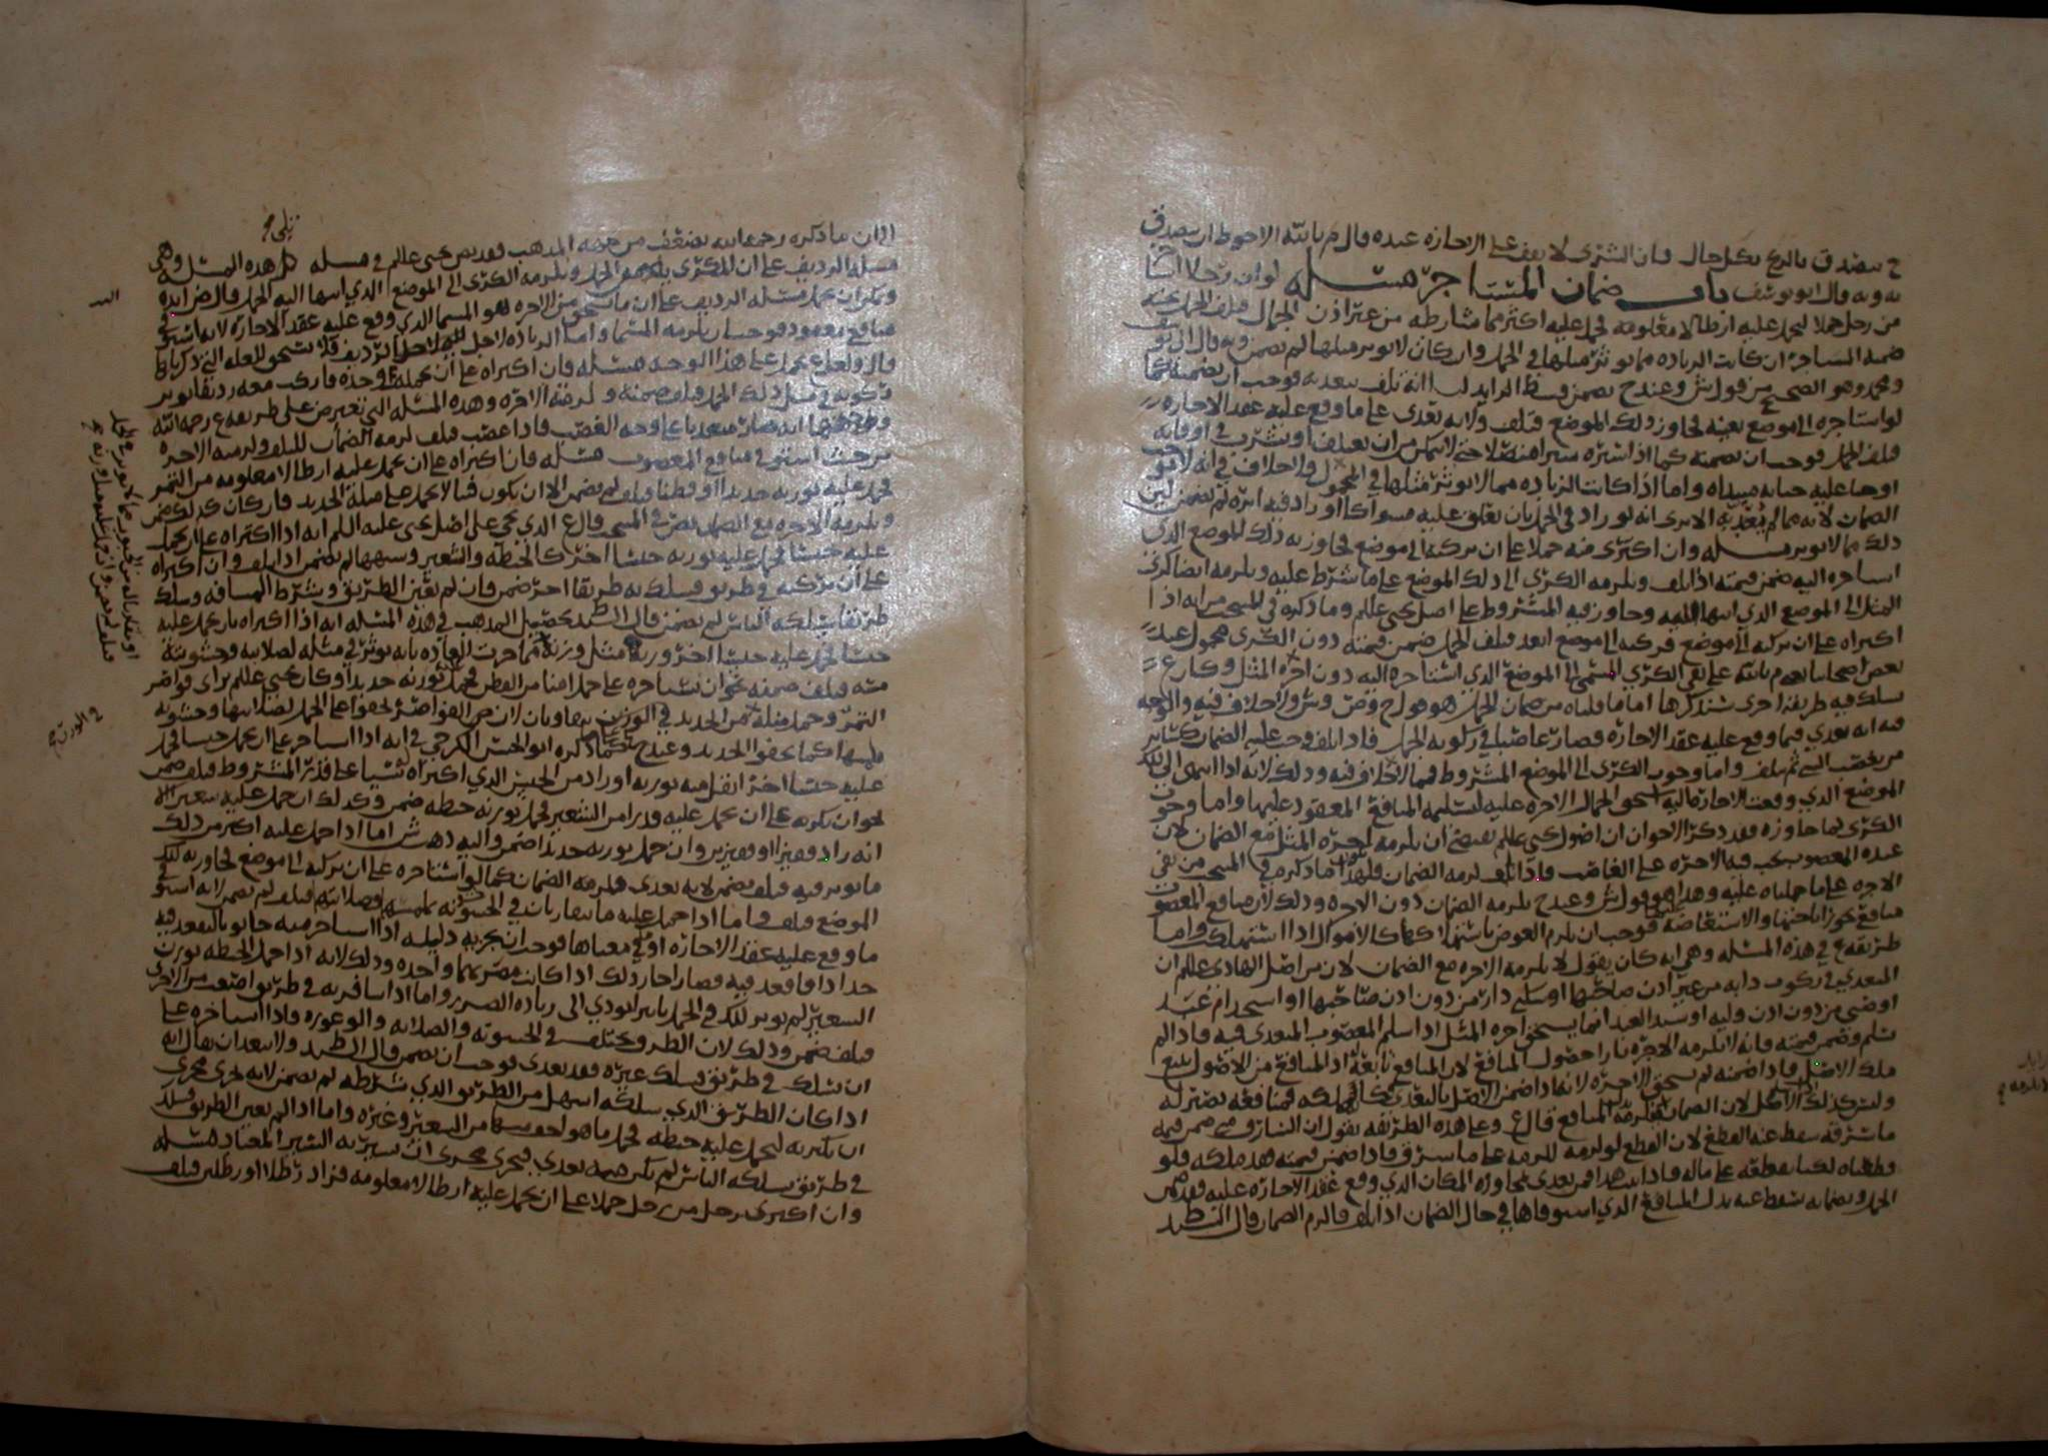 يتصدق بالربح بكل حال فان الشرى لا يقف على الاجازه عنده قال م بالله الاحوط ان يتصدق
به وبه قال ابو يوسف باب ضمان المستاجر مسئله لو ان رجلا استاجر
من رجل جملا ليحمل عليه ارطالا معلومه فحمل عليه اكثر مما شارطه من غير اذن الجمال فتلف الجمل تحته
ضمنه المستاجر ان كانت الزياده مما يوثر مثلها في الحمل وان كان لا يوثر مثلها لم يضمن وبه قال ابو يوسف
ومحمد وهو الصحيح من قول ش وعند ح يضمن قسط الزايد لنا انه تلف بتعديه فوجب ان يضمنه كما
لو استاجره الى موضع بعينه فجاوز ذلك الموضع فتلف ولانه تعدى على ما وقع عليه عقد الاجاره
فتلف الجمل فوجب ان يضمنه كما اذا
الضمان لانه مما لم الا ترى انه لو زاد في الحمل بان تعلق عليه مسواكا او زاد فيه ابره لم يضمن لان
ذلك مما لا يوثر مسئله وان اكترى منه جملا على ان يركبه الى موضع فجاوز به ذلك الموضع الذي
استاجره اليه ضمن قيمته اذا تلف ويلزمه الكرى الى ذلك الموضع على ما شرط عليه ويلزمه ايضا كرى
المثل الى الموضع الذي انتهى اليه وجاوز فيه المشروط على اصل يحيى عللم وما ذكره في المنتخب من انه اذا
اكتراه على ان يركبه الى موضع فركبه الى موضع ابعد فتلف الجمل ضمن قيمته دون الكرى محمول عند
بعض اصحابنا وهو م بالله على نفي الكرى المسمى الى الموضع الذي استاجره اليه دون اجره المثل وكان ع
سلك فيه طريقه اخرى سنذكرها اما ما قلناه من ضمان الجمل هو قول ح وص وش ولا خلاف فيه والوجه
فيه انه تعدى فيما وقع عليه عقد الاجاره فصار غاصبا في ركوبه الجمل فاذا تلف وجب عليه الضمان كساير
من يغصب الشي ثم يتلف واما وجوب الكرى الى الموضع المشروط فمما لا خلاف فيه وذلك لانه اذا انتهى الى ذلك
الموضع الذي وقعت الاجاره عليه استحق الجمال الاجره عليه لتسليمه المنافع المعقود عليها واما وجوب
الكرى لما جاوزه فقد ذكر الاخوان ان اصول يحيى عللم يقتضي ان يلزمه اجره المثل مع الضمان لان
عنده المغصوب يجب فيه الاجره على الغاصب فاذا تلف لزمه الضمان ما ذكره في المنتخب من نفي
الاجره على ما حملناه عليه وهذا هو قول ش وعند ح يلزمه الضمان دون الاجره وذلك لان منافع المغصوب
منافع يجوز اباحتها والاستعاضه فوجب ان يلزم العوض باستهلاكها كالاموال اذا استهلكت واما
طريقه ع في هذه المسئله وهي انه كان يقول لا يلزمه الاجره مع الضمان لان من اصل الهادي عللم ان
المتعدي في ركوب دابه من غير اذن صاحبها او سكنى دار من دون اذن صاحبها او استخدام عبد
او صبي من دون اذن وليه او سيد العبد انما يستحق اجره المثل اذا سلم المغصوب المتعدى فيه فاذا لم
يسلم وضمن قيمته فانه لا يلزمه الاجره بازا حصول المنافع لان المنافع تابعه اذ المنافع من الاصول تتبع
ملك الاصل فاذا ضمنه لم يستحق الاجره لانه اذا ضمن الاصل بالتعدي كان ملكه فمنافعه بمنزله
وليس كذلك الاكل لان الضمان المنافع قال ع وعلى هذه الطريقه يقول ان السارق متى ضمن قيمه
ما سرقه سقط عنه القطع لان القطع لو لزمه للزمه على ما سرق فاذا ضمن قيمته فقد ملكه فلو
قطعناه لكنا نقطعه على ماله فاذا ثبت هذا فمن تعدى بمجاوزه المكان الذي وقع عقد الاجاره عليه فقد ضمن
الجمل وبضمانه سقط عنه بدل المنافع الذي استوفاها في حال الضمان اذا تلف والزم الضمان قال السيد ط
الا ان ما ذكره رحمه الله يضعف من جهه المذهب فقد نص يحيى عللم في مسئله تلي هذه المسئله وهي
مسئله الرديف على ان المكتري يضمن الجمل ويلزمه الكرى الى الموضع الذي انتهى اليه الجمل قال رضي الله
ويمكن ان يحمل مسئله الرديف على ان ما يستحق من الاجره هو المسمى الذي وقع عليه عقد الاجاره لانه استوفى
منافع معقوده فوجب ان يلزمه المسمى واما الزياده لاجل الرديف فلا يستحق للعله التي ذكرناها
قال ولعل ع يحمل على هذا الوجه مسئله فان اكتراه على ان يحمله وحده فاركب معه رديفا يوثر
ركوبه في مثل ذلك الجمل فتلف ضمنه ولزمته الاجره وهذه المسئله التي تعترض على طريقه ع رحمه الله
ووجهها انه صار متعديا على وجه الغصب فاذا غصب فتلف لزمه الضمان للتلف ولزمته الاجره
من حيث استوفى منافع المغصوب مسئله فان اكتراه على ان يحمل عليه ارطالا معلومه من التمر
فحمل عليه بوزنه حديدا او قطنا فتلف لم يضمن الا ان يكون مما لا يحمل على مثله الحديد فان كان كذلك ضمن
ويلزمه الاجره مع الضمان نص في المنتخب قال ع الذي يجي على اصل يحيى عليه السلم انه اذا اكتراه على ان يحمل
عليه جنسا فحمل عليه بوزنه جنسا اخر كالحنطه والشعير وشبههما لم يضمن اذا تلف وان اكتراه
على ان يركبه في طريق فسلك به طريقا اخر ضمن فان لم يعين الطريق وشرط المسافه وسلك
طريقا يسلكه الناس لم يضمن قال السيد ط تحصيل المذهب في هذه المسئله انه اذا اكتراه بان يحمل عليه
جنسا فحمل عليه جنسا اخر وزنه مثل وزنه مما جرت العاده بانه يوثر في مثله لصلابته وخشونه
مسه فتلف ضمنه نحو ان يستاجره على حمل امنا من القطن فحمل بوزنه حديدا وكان يحيى عللم يرى قواصر
التمر وحمل مثله من الحديد في الوزن يتقاربان لان القواصر تجفو على الجمل لصلابتها وخشونه
ملمسها كما يجفو الحديد وعند ح كما ذكره ابو الحسن الكرخي في انه اذا استاجر على ان يحمل جنسا فحمل
عليه جنسا اخر اثقل منه بوزنه او زاد من الجنس الذي اكتراه شيا على قدر المشروط فتلف ضمن
نحو ان يكريه على ان يحمل عليه قدرا من الشعير فحمل بوزنه حنطه ضمن وكذلك ان حمل عليه شعيرا الا
انه زاد قفيزا او قفيزين وان حمل بوزنه حديدا ضمن واليه ذهب ش اما اذا حمل عليه اكثر من ذلك
ما يوثر فيه فتلف يضمن لانه تعدى فلزمه الضمان كما لو استاجره على ان يركبه الى موضع فجاوز به ذلك
الموضع وتلف واما اذا حمل عليه ما يتقاربان في الخشونه ملمسه وصلابته فتلف لم يضمن لانه استوفى
ما وقع عليه عقد الاجاره او في معناها فوجب ان يجزيه دليله اذا استاجر منه حانوتا ليقعد فيه
حدادا فاقعد فيه قصارا جاز ذلك اذا كانت مضرتهما واحده وذلك لانه اذا حمل الحنطه بوزن
الشعير لم يوثر ذلك في الجمل تاثيرا يودي الى زياده الضرر واما اذا سافر به في طريق اصعب من الاخرى
فتلف ضمن وذلك لان الطرق تختلف في الخشونه والصلابه والوعوره فاذا استاجره على
ان يسلك في طريق فسلك غيره فقد تعدى فوجب ان يضمن قال السيد ط ولا يبعد ان يقال انه
اذا كان الطريق الذي سلكه اسهل من الطريق الذي شرطه لم يضمن لانه يجري مجرى
ان يكتريه ليحمل عليه حنطه فحمل ما هو اخف منها من الشعير وغيره واما اذا لم يعين الطريق فسلك
في طريق يسلكه الناس لم يكن منه تعدي فيجري مجرى ان يسير به السير المعتاد مسئله
وان اكترى رجل من رجل جملا على ان يحمل عليه ارطالا معلومه فزاد رطلا او رطلين فتلف
في الوزن